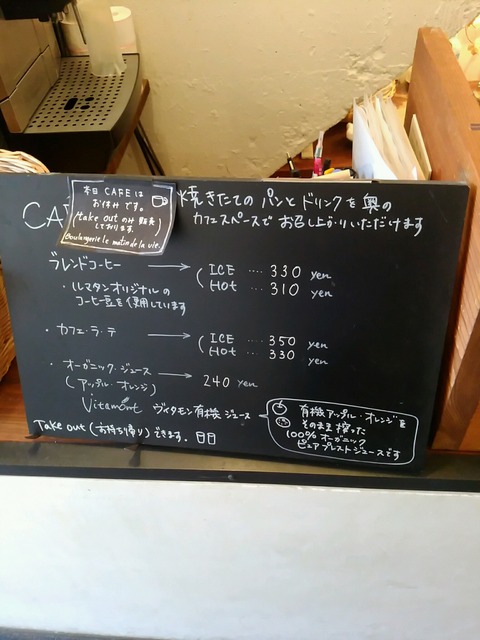 本日 CAFEは
お休みです。
(take outのみ 販売
しております。)
Boulangerie le matin de la vie.
CA
焼きたてのパンとドリンクを奥の
カフェスペースでお召し上がりいただけます
ブレンドコーヒー → ( ICE .... 330 yen
Hot ... 310 yen
・ルマタンオリジナルの
コーヒー豆を使用しています
・カフェ・ラ・テ → ( ICE ... 350 yen
Hot ... 330 yen
・オーガニック・ジュース → 240 yen
(アップル・オレンジ)
Vitamont ヴィタモン有機ジュース
有機アップル・オレンジを
そのまま搾った
100%オーガニック
ピュアプレストジュースです
Take out (お持ち帰り)できます.